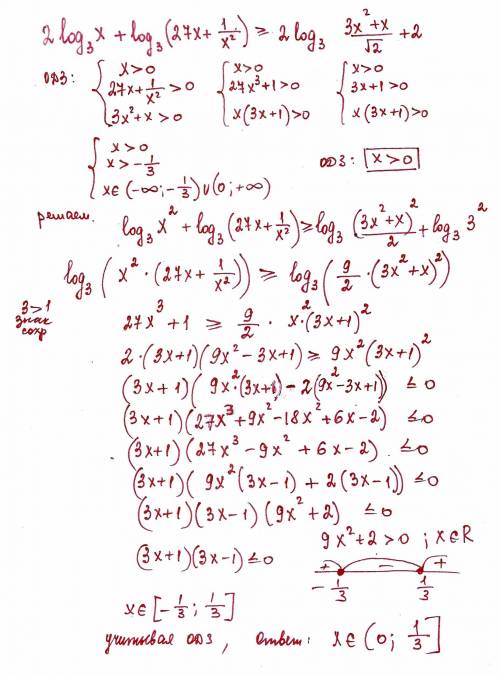 2 log₃ x + log₃ (27x + 1/x²) ≥ 2 log₃ (3x²+x)/√2 + 2
ОДЗ: { x>0 { x>0 { x>0
27x + 1/x² >0 27x³+1>0 3x+1>0
3x²+x>0 x(3x+1)>0 x(3x+1)>0
{ x>0
x>-1/3 ОДЗ: x>0
x∈(-∞; -1/3)∪(0; +∞)
решаем. log₃ x² + log₃ (27x + 1/x²) ≥ log₃ (3x²+x)²/2 + log₃ 3²
log₃ (x² · (27x + 1/x²)) ≥ log₃ (9/2 · (3x²+x)²)
3>1
знак
сохр
27x³ + 1 ≥ 9/2 · x² (3x+1)²
2·(3x+1)(9x²-3x+1) ≥ 9x²(3x+1)²
(3x+1)(9x²·(3x+1) - 2(9x²-3x+1)) ≤0
(3x+1)(27x³+9x²-18x²+6x-2) ≤0
(3x+1)(27x³-9x²+6x-2) ≤0
(3x+1)(9x²(3x-1)+2(3x-1)) ≤0
(3x+1)(3x-1)(9x²+2) ≤0
9x²+2>0 ; x∈R
(3x+1)(3x-1) ≤0
+ - +
-1/3 1/3
x∈[-1/3; 1/3]
учитывая ОДЗ, ответ: x∈(0; 1/3]